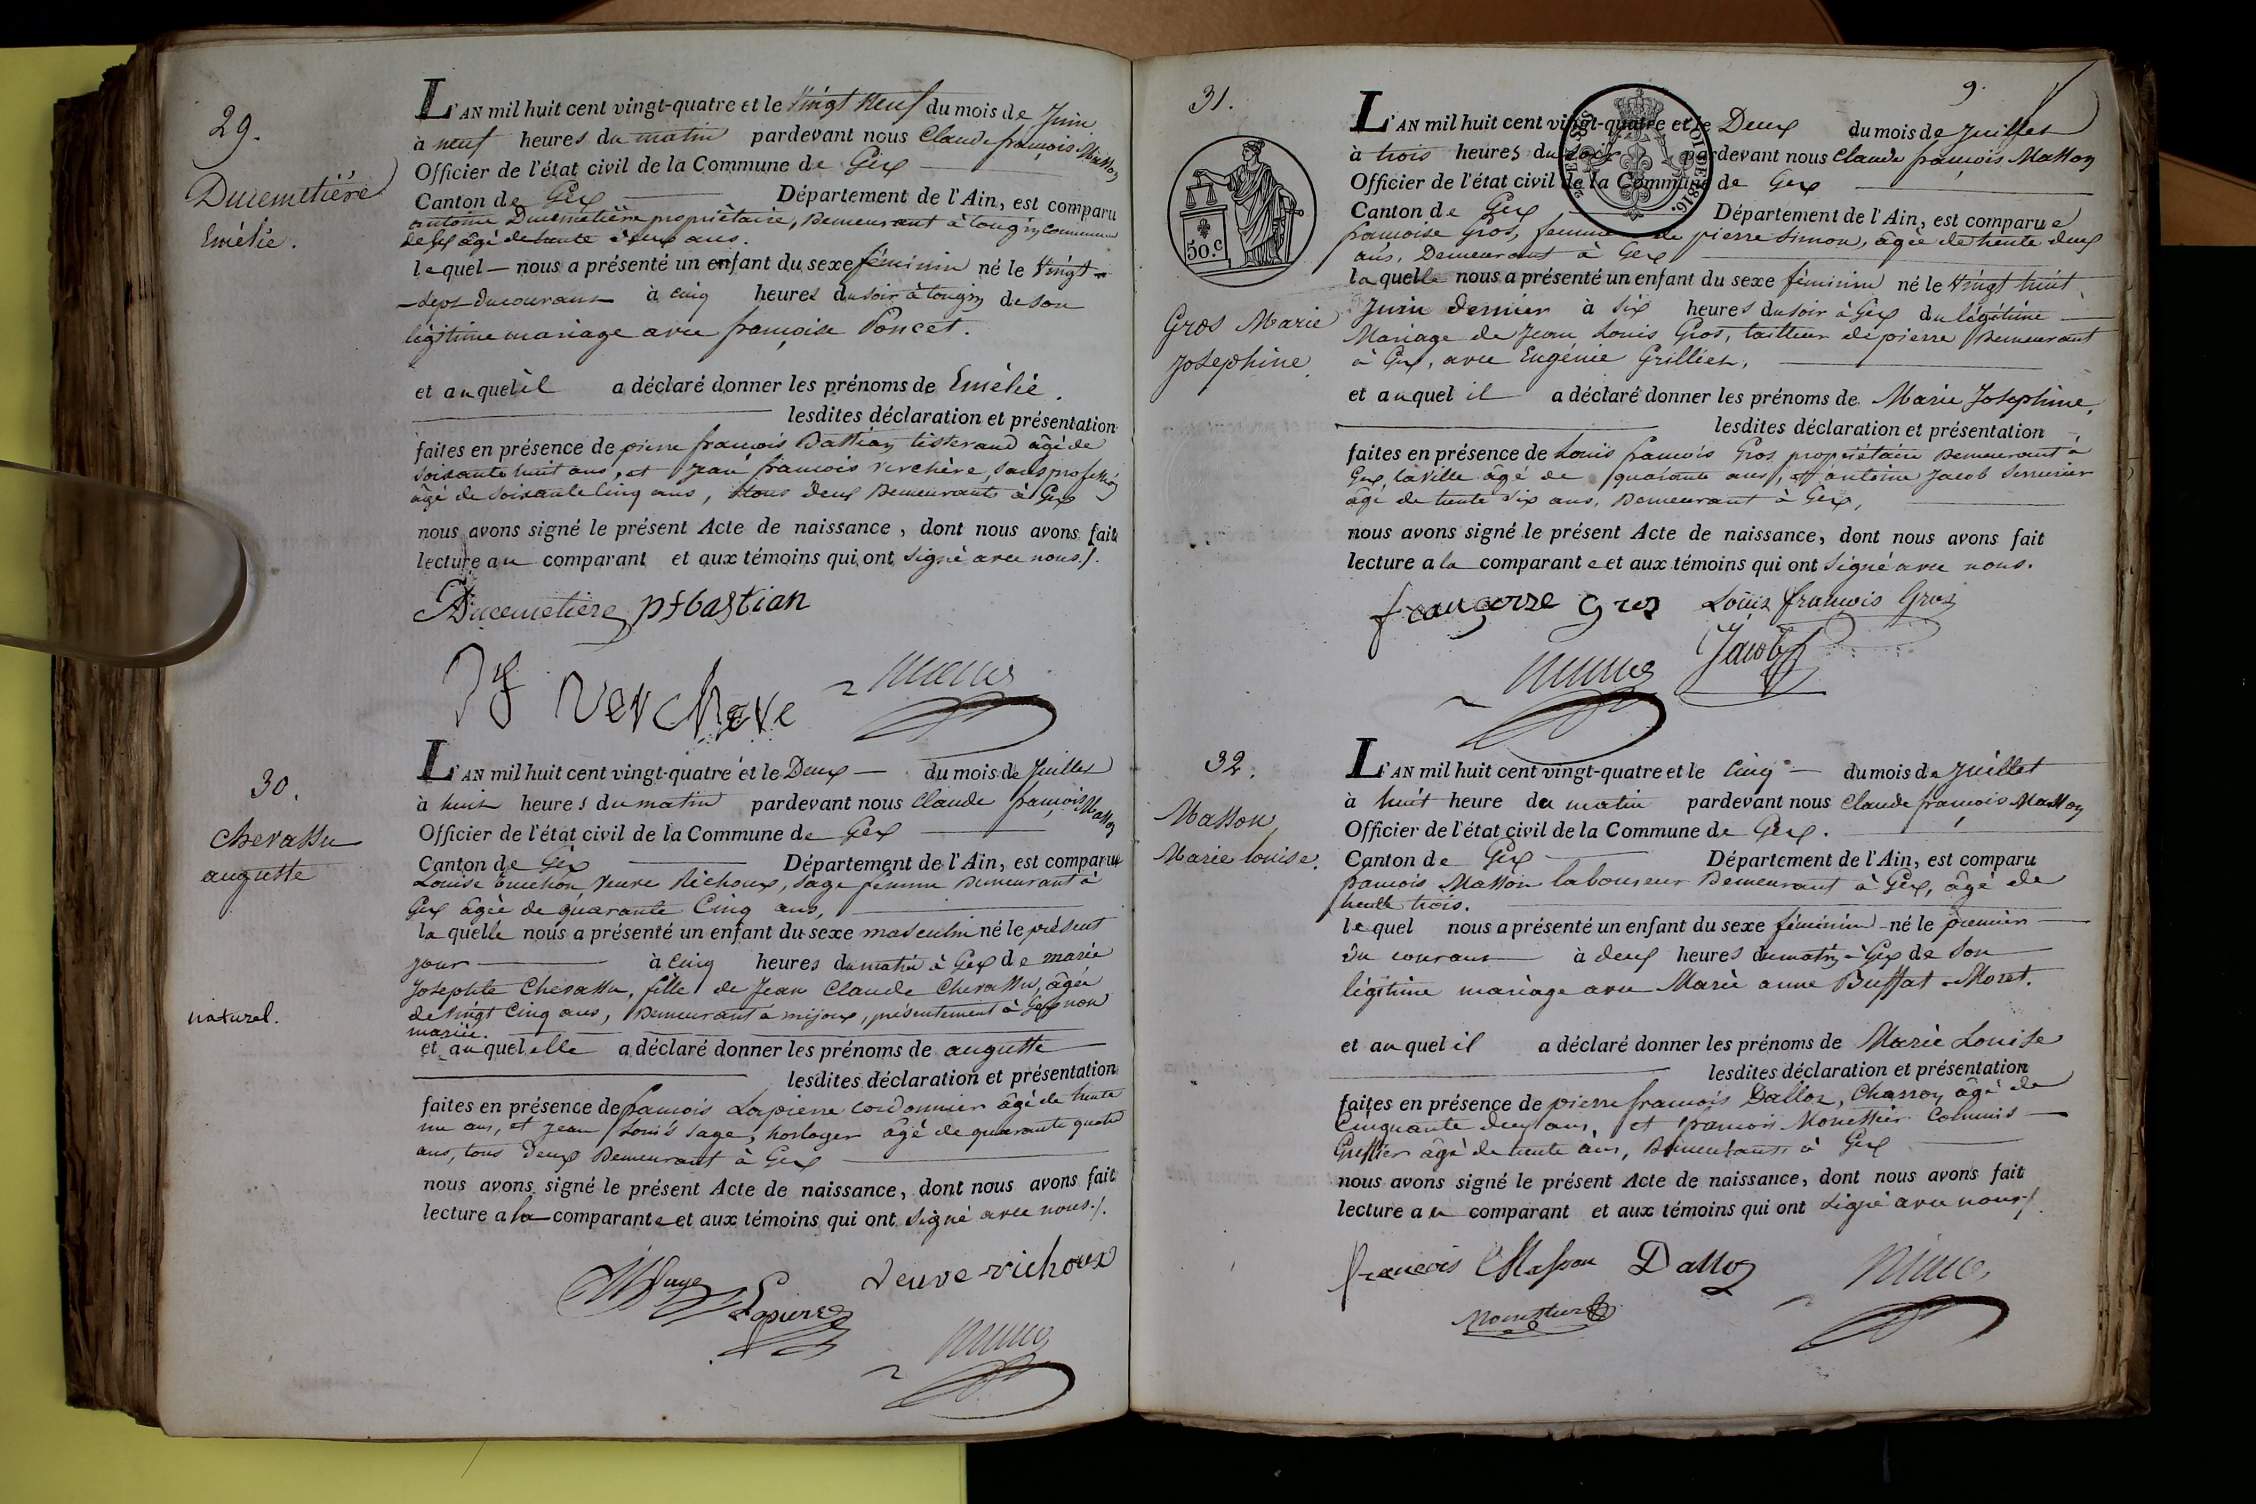 29.
Ducemetière
Emélie.
L'AN mil huit cent vingt-quatre et le vingt neuf du mois de Juin
à neuf heures du matin pardevant nous Claude françois Masson
Officier de l'état civil de la Commune de Gex
Canton de Gex Département de l'Ain, est comparu
antoine Ducemetière propriétaire, Demeurant à tougin commune
de Gex âgé de trente deux ans.
lequel nous a présenté un enfant du sexe féminin né le vingt
sept du courant à cinq heures du soir à tougin de son
légitime mariage avec françoise Poncet.
et auquel il a déclaré donner les prénoms de Emélié.
lesdites déclaration et présentation
faites en présence de pierre françois Bastian tisserand âgé de
soixante huit ans, et Jean françois verchère, sans profession
âgé de soixante cinq ans, tous deux Demeurants à Gex
nous avons signé le présent Acte de naissance, dont nous avons fait
lecture au comparant et aux témoins qui ont signé avec nous./.
Ducemetière pfbastian
Jf verchere
30.
Chevassu
auguste
naturel.
L'AN mil huit cent vingt-quatre et le Deux du mois de Juillet
à huit heures du matin pardevant nous Claude françois Masson
Officier de l'état civil de la Commune de Gex
Canton de Gex Département de l'Ain, est comparue
Louise veuve Richoux, sage femme Demeurant à
Gex âgée de quarante Cinq ans,
laquelle nous a présenté un enfant du sexe masculin né le présent
jour à cinq heures du matin à Gex de marie
Josephte Chevassu, fille de Jean Claude Chevassu, âgée
de vingt cinq ans, Demeurant a mijoux, présentement à Gex non
mariée.
et auquel elle a déclaré donner les prénoms de auguste
lesdites déclaration et présentation
faites en présence de francois Lapierre cordonnier âgé de trente
un ans, et Jean Louis Sage, horloger âgé de quarante quatre
ans, tous deux Demeurant à Gex
nous avons signé le présent Acte de naissance, dont nous avons fait
lecture a la comparante et aux témoins qui ont signé avec nous./.
Sage Lapierre veuve richoux
9.
31.
50.c
Gros Marie
Josephine.
L'AN mil huit cent vingt-quatre et le Deux du mois de Juillet
à trois heures du soir pardevant nous Claude françois Masson
Officier de l'état civil de la Commune de Gex
Canton de Gex Département de l'Ain, est comparue
françoise Gros, femme de pierre Simon, âgée de trente deux
ans, Demeurant à Gex
laquelle nous a présenté un enfant du sexe féminin né le vingt huit
Juin dernier à six heures du soir à Gex du légitime
Mariage de Jean Louis Gros, tailleur de pierre Demeurant
à Gex, avec Eugénie Grilliet,
et auquel il a déclaré donner les prénoms de Marie Josephine,
lesdites déclaration et présentation
faites en présence de Louis francois Gros propriétaire Demeurant à
Gex, la ville âgé de quarante ans, et antoine Jacob Serrurier
âgé de trente six ans, Demeurant à Gex,
nous avons signé le présent Acte de naissance, dont nous avons fait
lecture a la comparante et aux témoins qui ont signé avec nous.
françoise gros Louis françois Gros
Jacob
32.
Masson,
Marie Louise.
L'AN mil huit cent vingt-quatre et le Cinq du mois de Juillet
à huit heure du matin pardevant nous Claude françois Masson
Officier de l'état civil de la Commune de Gex.
Canton de Gex Département de l'Ain, est comparu
francois Masson laboureur Demeurant à Gex, âgé de
trente trois.
lequel nous a présenté un enfant du sexe féminin né le premier
du courant à deux heures du matin à Gex de son
légitime mariage avec Marie anne Buffat-Moret.
et auquel il a déclaré donner les prénoms de Marie Louise
lesdites déclaration et présentation
faites en présence de pierre francois Dalloz, Charron, âgé de
Cinquante deux ans, et francois Monestier Commis
Greffier âgé de trente ans, Demeurants à Gex
nous avons signé le présent Acte de naissance, dont nous avons fait
lecture au comparant et aux témoins qui ont signé avec nous./.
francois Masson Dalloz
Monestier